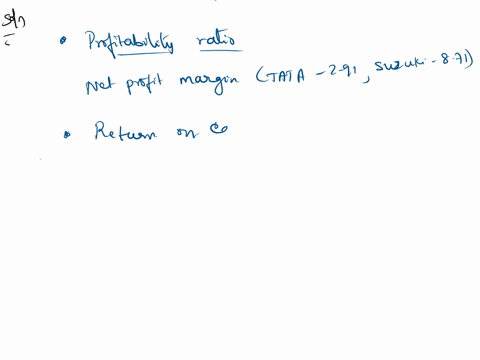 Sol
• Profitability ratio
Net profit margin (TATA - 2.91, Suzuki - 8.71)
• Return on Co